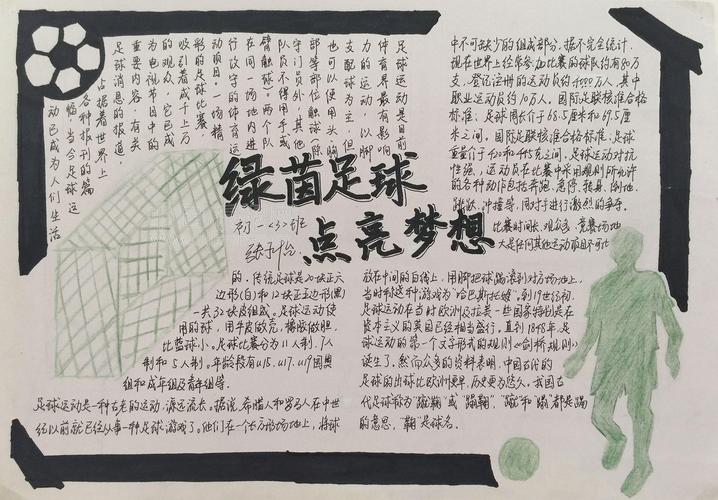 足球运动是目前
体育界最有影响
力的运动，以脚
支配球为主，但
也可以使用头、胸
部等部位触球(除
守门员外，其他
队员不得用手或
臂触球)。两个队
在同一场地内进
行攻守的体育运
动项目。一场精
形的足球比赛
吸引着成千上万
的观众，它已成
为电视节目中的
重要内容，有关
足球消息的报道，
占据着世界上
各种报刊的篇
幅，当今足球运
动已成为人们生活
中不可缺少的组成部分。据不完全统计，
现在世界上经常参加比赛的球队约有80万
支，登记注册的运动员约4000万人，其中
职业运动员约10万人。国际足联核准合格
标准、足球周长介于68.5厘米和69.5厘
米之间。国际足联核准合格标准、足球
重量介于420和445克之间。足球运动对抗
性强，运动员在比赛中采用规则所允许
的各种动作包括奔跑、急停、转身、倒地、
跳跃、冲撞等，同对手进行激烈的争夺。
比赛时间长、观众多、竞赛场地
大是任何其他运动项目不可比
绿茵足球
点亮梦想
初一<3>班
的。传统足球是20块正六
边形(白)和12块正五边形(黑)
一共32块皮组成。足球运动使
用的球，用牛皮做壳，橡胶做胆，
比蓝球小。足球比赛分为11人制、7人
制和5人制。年龄段有U15、U17、U19国奥
组和成年组及青年组等。
足球运动是一种古老的运动，源远流长。据说，希腊人和罗马人在中世
纪以前就已经从事一种足球游戏了。他们在一个长方形场地上，将球
放在中间的白线上，用脚把球踢滚到对方场地上，
当时称这种游戏为“哈巴斯托姆”。到19世纪初，
足球运动在当时欧洲及拉美一些国家特别是在
资本主义的英国已经相当盛行。直到1848年，足
球运动的第一个文字形式的规则《剑桥规则》
诞生了。然而众多的资料表明，中国古代的
足球的出球比欧洲更早，历史更为悠久。我国古
代足球称为“蹴鞠”或“蹋鞠”，“蹴”和“蹋”都是踢
的意思，“鞠”是球名。